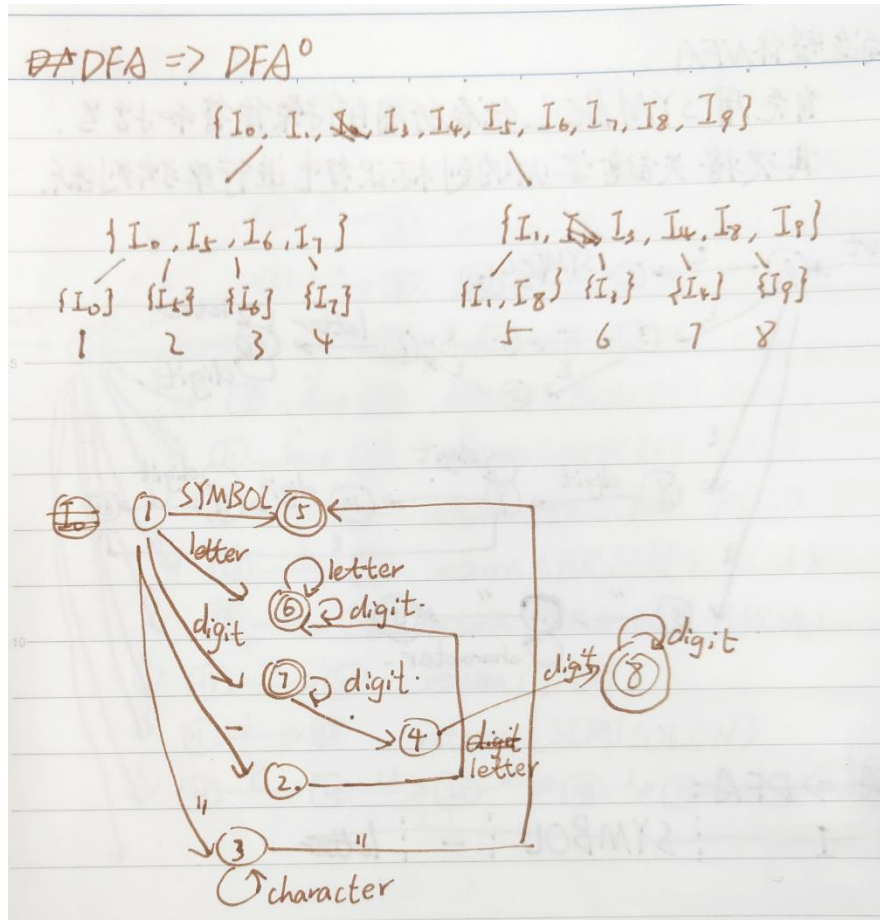 DFA => DFA⁰
{I₀, I₁, I₃, I₄, I₅, I₆, I₇, I₈, I₉}
{I₀, I₅, I₆, I₇} {I₁, I₃, I₄, I₈, I₉}
{I₀} {I₅} {I₆} {I₇} {I₁, I₈} {I₃} {I₄} {I₉}
1 2 3 4 5 6 7 8
I₀ 1 SYMBOL 5
letter letter
6 digit.
digit digit 8 digit
7 digit.
. 4
- digit
2. letter
" 3 "
character